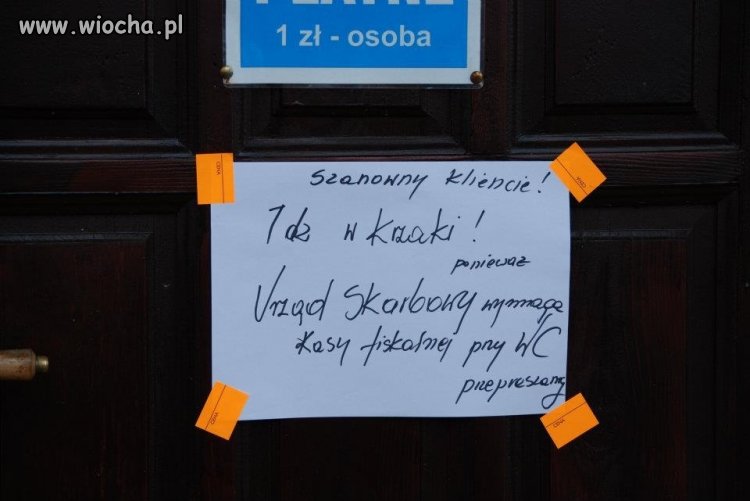 www.wiocha.pl
PŁATNE
1 zł - osoba
CENA
CENA
Szanowny Kliencie!
Idz w Krzaki!
ponieważ
Urząd Skarbowy wymaga
kasy fiskalnej przy WC
przepraszamy
CENA
CENA